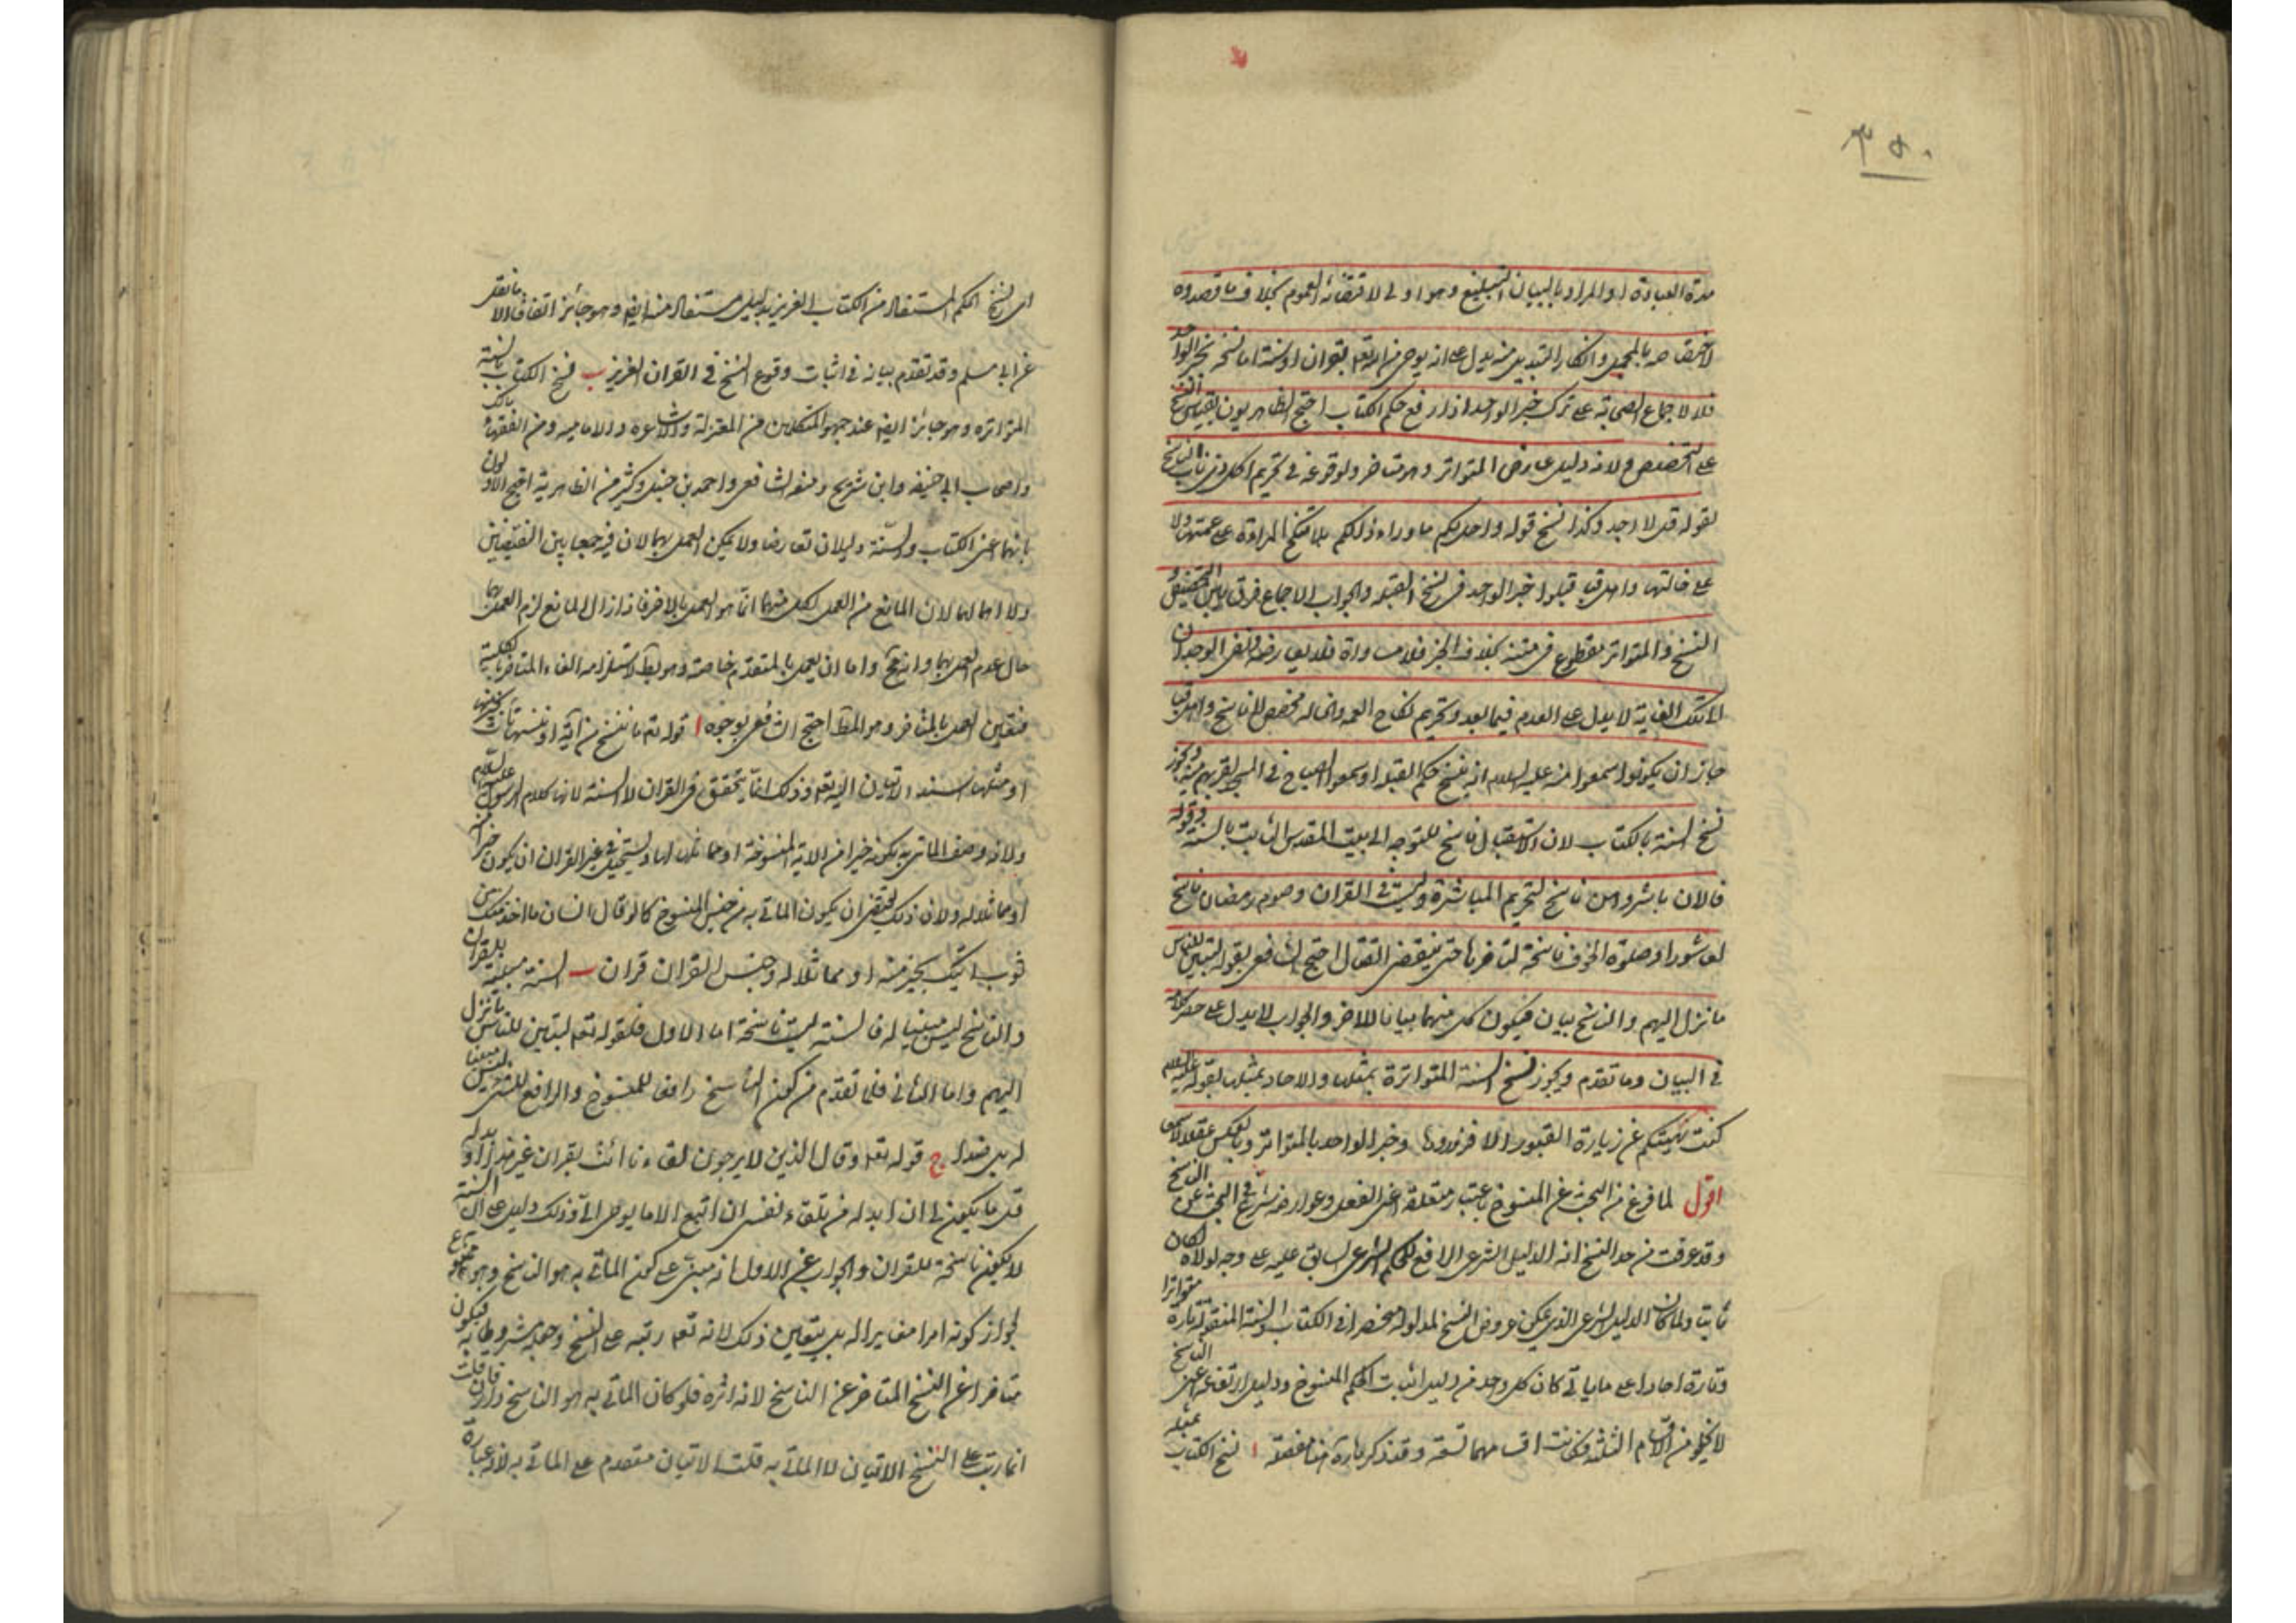 ٣٥٠
مدة العبادة او المراد بالبيان التبليغ وهو اولى لاقتضائه العموم بخلاف ما قصدوه
لاختصاصه بالمجمل وانكار التبديل منه يدل على انه يوحى من الله تعالى بقران او سنة اما نسخه بخبر الواحد
فلا لاجماع الصحابة على ترك خبر الواحد اذا رفع حكم الكتاب احتج الظاهريون بقياس النسخ
على التخصيص ولانه دليل عارض المتواتر وهو متاخر ولوقوعه في تحريم اكل ذي ناب الناسخ
لقوله قل لا اجد وكذا نسخ قوله واحل لكم ما وراء ذلكم بلا تنكح المراة على عمتها ولا
على خالتها واهل قبا قبلوا خبر الواحد في نسخ القبلة والجواب الاجماع فرق بين التخصيص و
النسخ والمتواتر مقطوع في متنه بخلاف الخبر فلا مساواة فلا يعارضه ونفى الوجدان
الى تلك الغاية لا يدل على العدم فيما بعد وتحريم نكاح العمة والخالة مخصص لا ناسخ واهل قبا
جاز ان يكونوا سمعوا منه عليه السلام انه ينسخ حكم القبلة او سمعوا الصياح في المسجد لقربهم منه ويجوز
نسخ السنة بالكتاب لان الاستقبال ناسخ للتوجه الى بيت المقدس الثابت بالسنة وقوله
فالان باشروهن ناسخ لتحريم المباشرة وليس في القران وصوم رمضان ناسخ
لعاشورا وصلوة الخوف ناسخة لتاخيرها حتى ينقضي القتال احتج الشافعي بقوله لتبين للناس
ما نزل اليهم والناسخ بيان فيكون كل منهما بيانا للاخر والجواب لا يدل على حصر كلامه
في البيان وما تقدم ويجوز نسخ السنة المتواترة بمثلها والاحاد بمثلها لقوله عليه السلام
كنت نهيتكم عن زيارة القبور الا فزوروها وخبر الواحد بالمتواتر وبالعكس عقلا لا سمعا
اقول لما فرغ من البحث عن المنسوخ باعتبار متعلقه اعنى الفعل وعوارضه شرع في البحث عن الناسخ
وقد عرفت من حد النسخ انه الدليل الشرعى الرافع لحكم الشرعى السابق عليه على وجه لولاه لكان
ثابتا ولما كان الدليل الشرعى الذى يمكن عروض النسخ لمدلوله منحصرا في الكتاب والسنة المنقولة تارة متواترا
وتارة احادا على ما ياتى كان كل واحد من دليل اثبات الحكم المنسوخ ودليل ارتفاعه اعنى الناسخ
لا يخلو من الاقسام الثلثة فكانت اقسامهما تسعة وقد ذكر هنا منها ا نسخ الكتاب بمثله
اى نسخ الحكم المستفاد من الكتاب العزيز بدليل مستفاد منه ايضا وهو جائز اتفاقا الا ما نقل
عن ابى مسلم وقد تقدم بيانه في اثبات وقوع النسخ في القران العزيز ب نسخ الكتاب بالسنة
المتواتره وهو جائز ايضا عند جمهور المتكلمين من المعتزلة والاشاعرة والامامية ومن الفقهاء مالك
واصحاب ابى حنيفة وابن شريح ومنعه الشافعى واحمد بن حنبل وكثير من الظاهرية احتج الاولون
بانهما اعنى الكتاب والسنة دليلان تعارضا ولا يمكن العمل بهما لان فيه جمعا بين النقيضين
ولا اهمالهما لان المانع من العمل لكل منهما انما هو العمل بالاخر فاذا زال المانع لزم العمل بهما
حال عدم العمل بهما وانه مح واما ان يعمل بالمتقدم خاصة وهو بط لاستلزامه الغاء المتاخر بالكلية
فتعين العمل بالمتاخر وهو المط احتج الشافعى بوجوه ا قوله تع ما ننسخ من آية او ننسها نات بخير منها
او مثلها اسند الاتيان اليه تع وذلك انما يتحقق في القران لا السنة لانها كلام الرسول عليه السلام
ولانه وصف الماتى به بكونه خيرا من الاية المنسوخة او مماثلا لها ويستحيل في غير القران ان يكون خيرا منه
او مماثلا له ولان ذلك يقتضى ان يكون الماتى به من جنس المنسوخ كما لو قال انسان ما اخذ منك من
ثوب اتيك بخير منه او مماثلا له وجنس القران قران ب السنة مبينة للقران
والناسخ ليس مبينا له فالسنة ليست ناسخة اما الاول فلقوله تعا لتبين للناس ما نزل
اليهم واما الثانى فلما تقدم من كون الناسخ رافعا للمنسوخ والرافع للشى ليس مبينا
له بل ضدا له ج قوله تعا وقال الذين لا يرجون لقاءنا ائت بقران غير هذا او بدله
قل ما يكون لى ان ابدله من تلقاء نفسى ان اتبع الا ما يوحى الى وذلك دليل على ان السنة
لا يكون ناسخة للقران والجواب عن الاول انه مبنى على كون الماتى به هو الناسخ وهو ممنوع
لجواز كونه امرا مغايرا له بل يتعين ذلك لانه تعا رتبه على النسخ وجعله مشروطا به فيكون
متاخرا عن النسخ المتاخر عن الناسخ لانه اثره فلو كان الماتى به هو الناسخ دار فان قلت
انما رتب على النسخ الاتيان لا الماتى به قلت الاتيان متقدم على الماتى به لانه عبارة